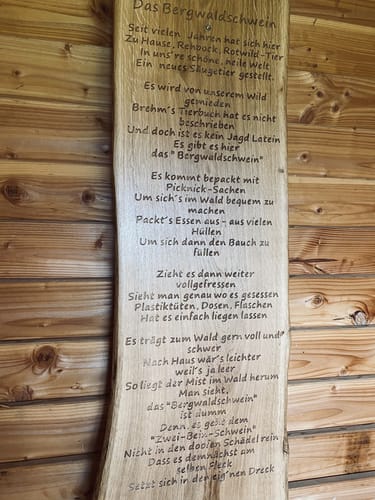 Das Bergwaldschwein
Seit vielen Jahren hat sich hier
Zu Hause, Rehbock, Rotwild-Tier
In uns're schöne, heile Welt
Ein neues Säugetier gestellt.
Es wird von unserem Wild
gemieden
Brehm's Tierbuch hat es nicht
beschrieben
Und doch ist es kein Jagd Latein
Es gibt es hier
das "Bergwaldschwein"
Es kommt bepackt mit
Picknick-Sachen
Um sich's im Wald bequem zu
machen
Packt's Essen aus - aus vielen
Hüllen
Um sich dann den Bauch zu
füllen
Zieht es dann weiter
vollgefressen
Sieht man genau wo es gesessen
Plastiktüten, Dosen, Flaschen
Hat es einfach liegen lassen
Es trägt zum Wald gern voll und
schwer
Nach Haus wär's leichter
weil's ja leer
So liegt der Mist im Wald herum
Man sieht,
das "Bergwaldschwein"
ist dumm
Denn, es geht dem
"Zwei-Bein-Schwein"
Nicht in den doofen Schädel rein
Dass es demnächst am
selben Fleck
Setzt sich in den eig'nen Dreck